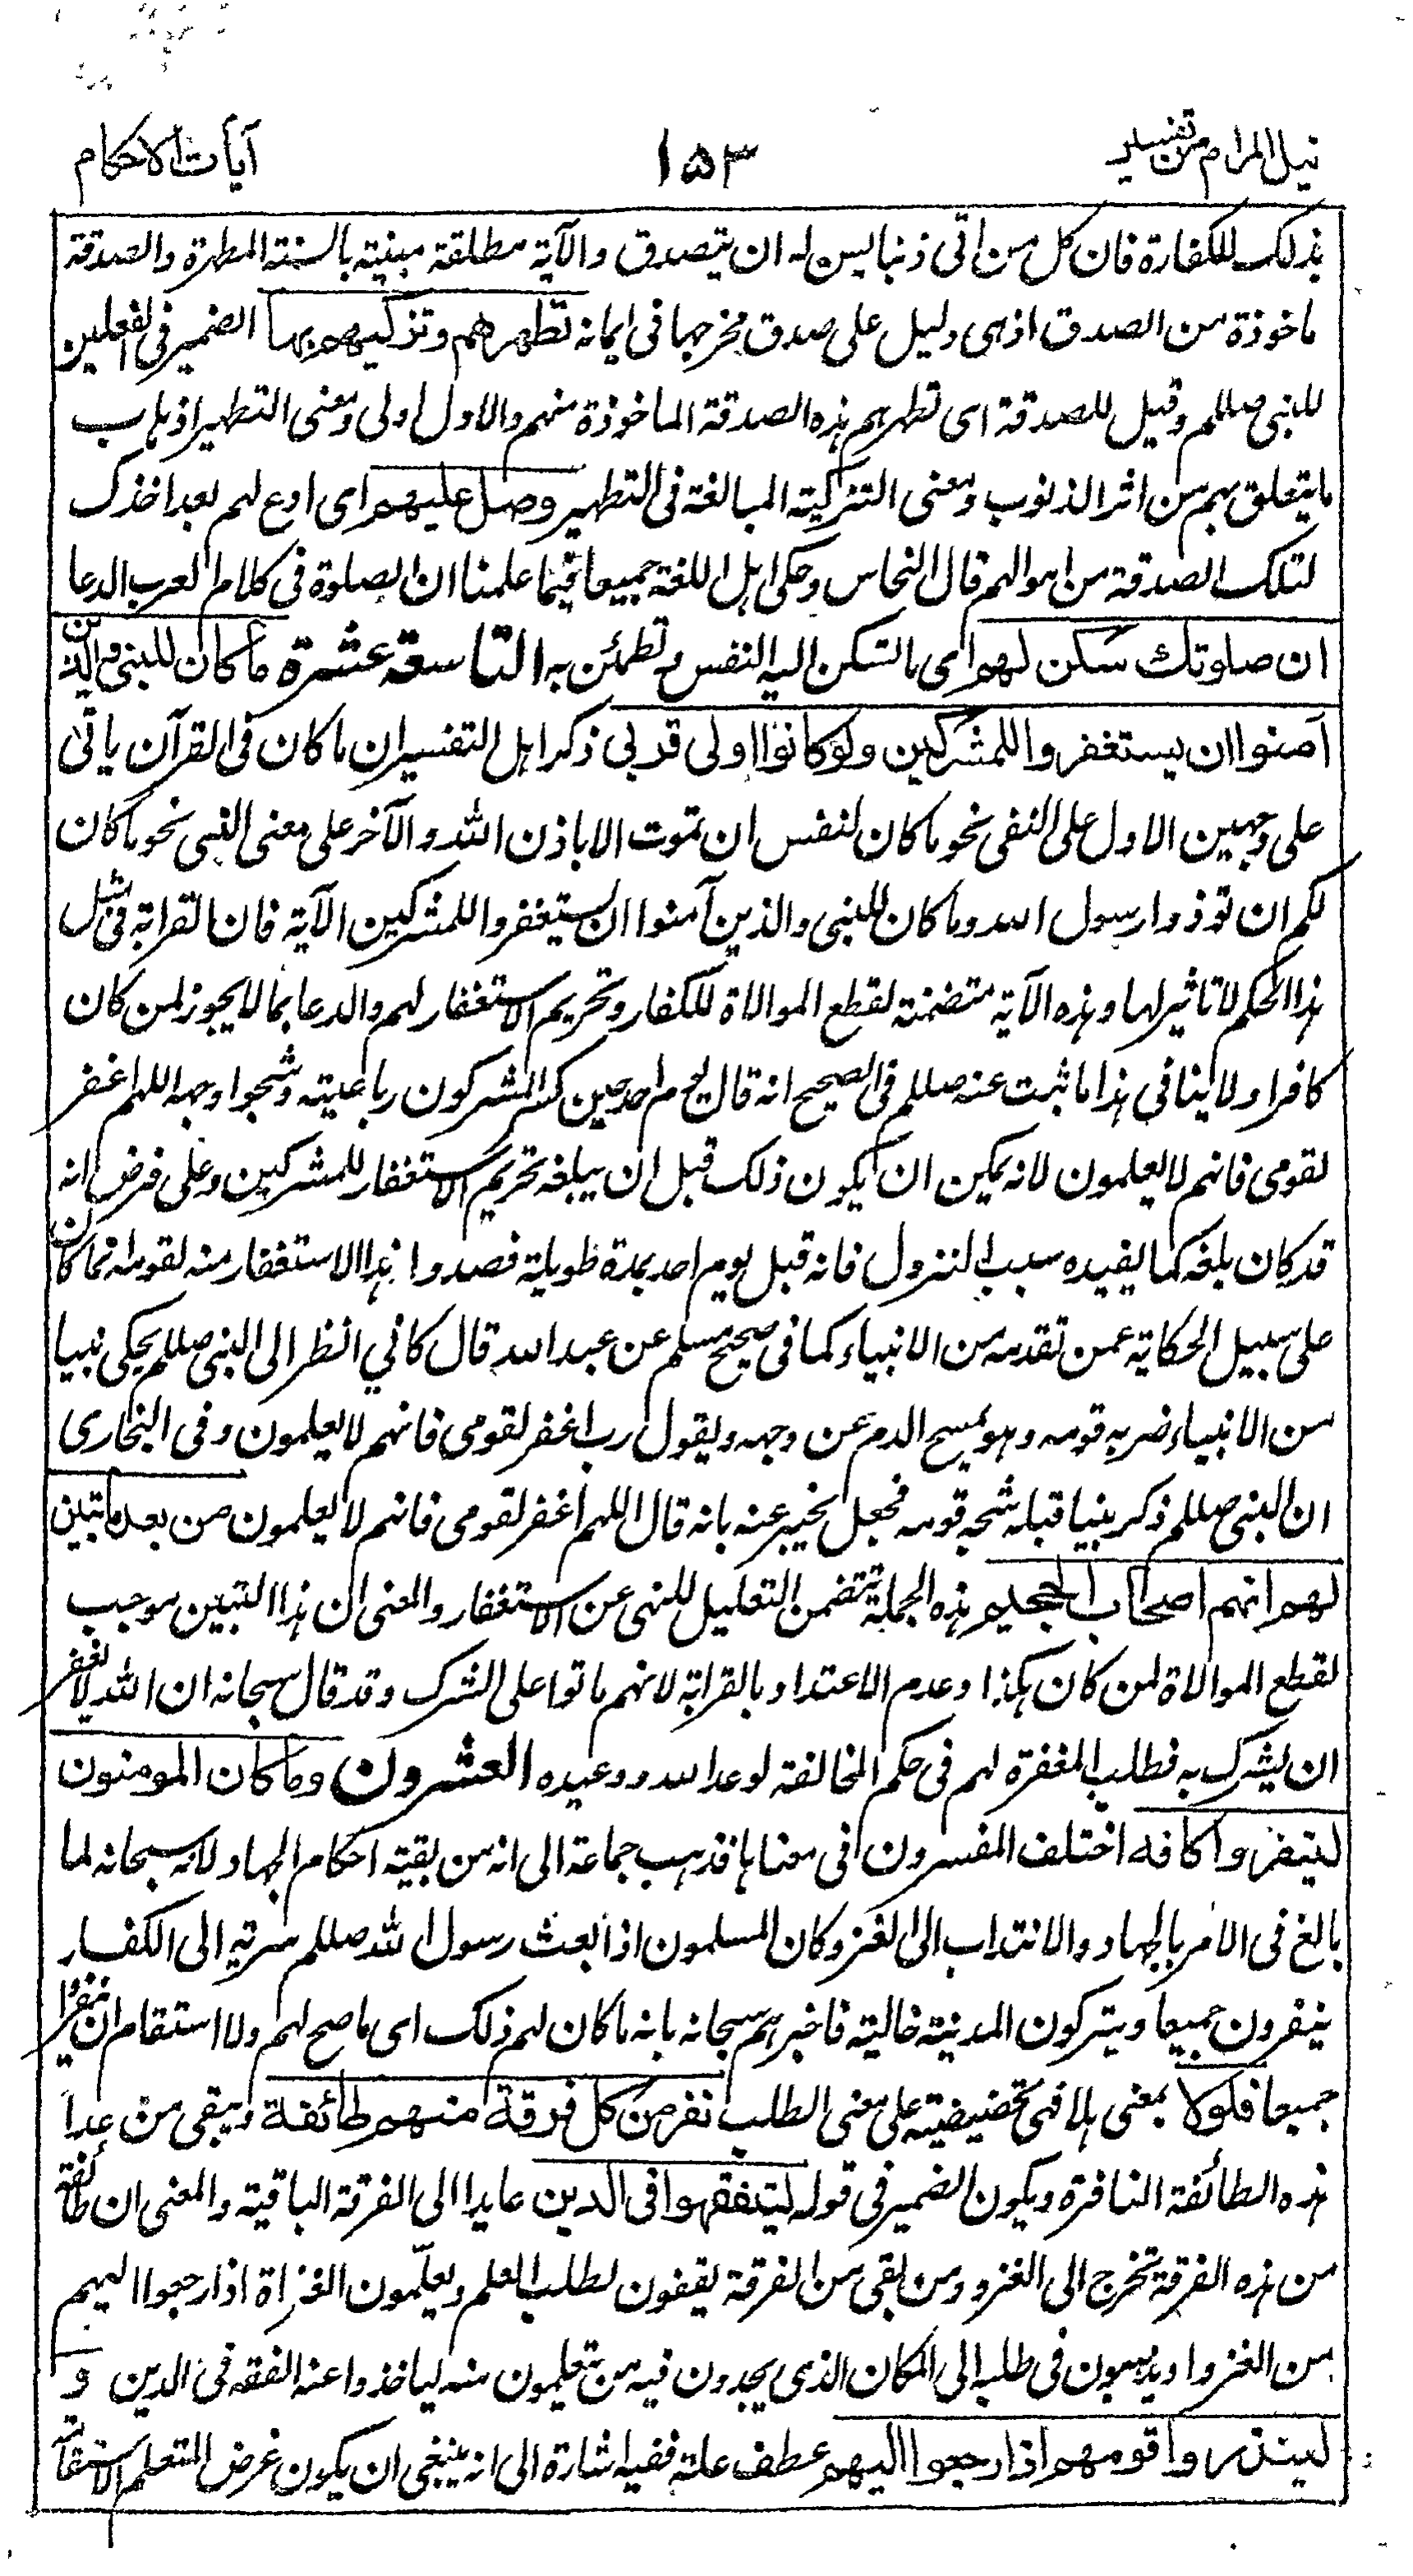 نيل المرام من تفسير
١٥٣
آيات الاحكام
بذلك للكفارة فان كل من اتى ذنبا ليس له ان يتصدق والآية مطلقة مبينة بالسنة المطهرة والصدقة
ماخوذة من الصدق اذ هى دليل على صدق مخرجها فى ايمانه تطهرهم وتزكيهم بها الضمير فى الفعلين
للنبى صللم وقيل للصدقة اى تطهرهم هذه الصدقة الماخوذة منهم والاول اولى ومعنى التطهير اذهاب
ما يتعلق بهم من اثر الذنوب ومعنى التزكية المبالغة فى التطهير وصل عليهم اى ادع لهم بعد اخذك
لتلك الصدقة من اموالهم قال النحاس وحكى اهل اللغة جميعا فيما علمنا ان الصلوة فى كلام العرب الدعا
ان صلوتك سكن لهم اى ما تسكن اليه النفس وتطمئن به التاسعة عشرة ما كان للنبى والذين
آمنوا ان يستغفروا للمشركين ولو كانوا اولى قربى ذكر اهل التفسير ان ما كان فى القرآن ياتى
على وجهين الاول على النفى نحو ما كان لنفس ان تموت الا باذن الله والآخر على معنى النهى نحو ما كان
لكم ان توذوا رسول الله وما كان للنبى والذين آمنوا ان يستغفروا للمشركين الآية فان القرابة فى مثل
هذا الحكم لا تاثير لها وهذه الآية متضمنة لقطع الموالاة للكفار وتحريم الاستغفار لهم والدعا بما لا يجوز لمن كان
كافرا ولا ينافى هذا ما ثبت عنه صللم فى الصحيح انه قال يوم احد حين كسر المشركون رباعيته وشجوا وجهه اللهم اغفر
لقومى فانهم لا يعلمون لانه يمكن ان يكون ذلك قبل ان يبلغه تحريم الاستغفار للمشركين وعلى فرض انه
قد كان بلغه كما يفيده سبب النزول فانه قبل يوم احد بمدة طويلة فصدوا هذا الاستغفار منه لقومه انما كان
على سبيل الحكاية عمن تقدمه من الانبياء كما فى صحيح مسلم عن عبد الله قال كاني انظر الى النبى صللم يحكى نبيا
من الانبياء ضربه قومه وهو يمسح الدم عن وجهه ويقول رب اغفر لقومى فانهم لا يعلمون وفى البخارى
ان النبى صللم ذكر نبيا قبله شجه قومه فجعل يخبر عنه بانه قال اللهم اغفر لقومى فانهم لا يعلمون من بعد ما تبين
لهم انهم اصحاب الجحيم هذه الجملة تتضمن التعليل للنهى عن الاستغفار والمعنى ان هذا التبين موجب
لقطع الموالاة لمن كان هكذا وعدم الاعتداد بالقرابة لانهم ماتوا على الشرك وقد قال سبحانه ان الله لا يغفر
ان يشرك به فطلب المغفرة لهم فى حكم المخالفة لوعد الله ووعيده العشرون وما كان المومنون
لينفروا كافة اختلف المفسرون فى معناها فذهب جماعة الى انه من بقية احكام الجهاد لانه سبحانه لما
بالغ فى الامر بالجهاد والانتداب الى الغزو كان المسلمون اذا بعث رسول الله صللم سرية الى الكفار
ينفرون جميعا ويتركون المدينة خالية فاخبرهم سبحانه بانه ما كان لهم ذلك اى ما صح لهم ولا استقام ان ينفروا
جميعا فلولا بمعنى هلا فهى تحضيضية على معنى الطلب نفر من كل فرقة منهم طائفة ويبقى من عدا
هذه الطائفة النافرة ويكون الضمير فى قوله ليتفقهوا فى الدين عايدا الى الفرقة الباقية والمعنى ان طائفة
من هذه الفرقة تخرج الى الغزو ومن بقى من الفرقة يقفون لطلب العلم ويعلّمون الغزاة اذا رجعوا اليهم
من الغزو او يذهبون فى طلبه الى المكان الذى يجدون فيه من يتعلمون منه لياخذوا عنه الفقه فى الدين و
لينذروا قومهم اذا رجعوا اليهم عطف علة ففيه اشارة الى انه ينبغى ان يكون غرض المتعلم الاستقامة